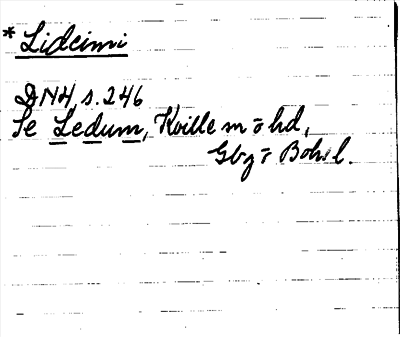 * Lideimi
DN4 s. 246
Se Ledum, Kville m o hd,
Gbg o Bohl.